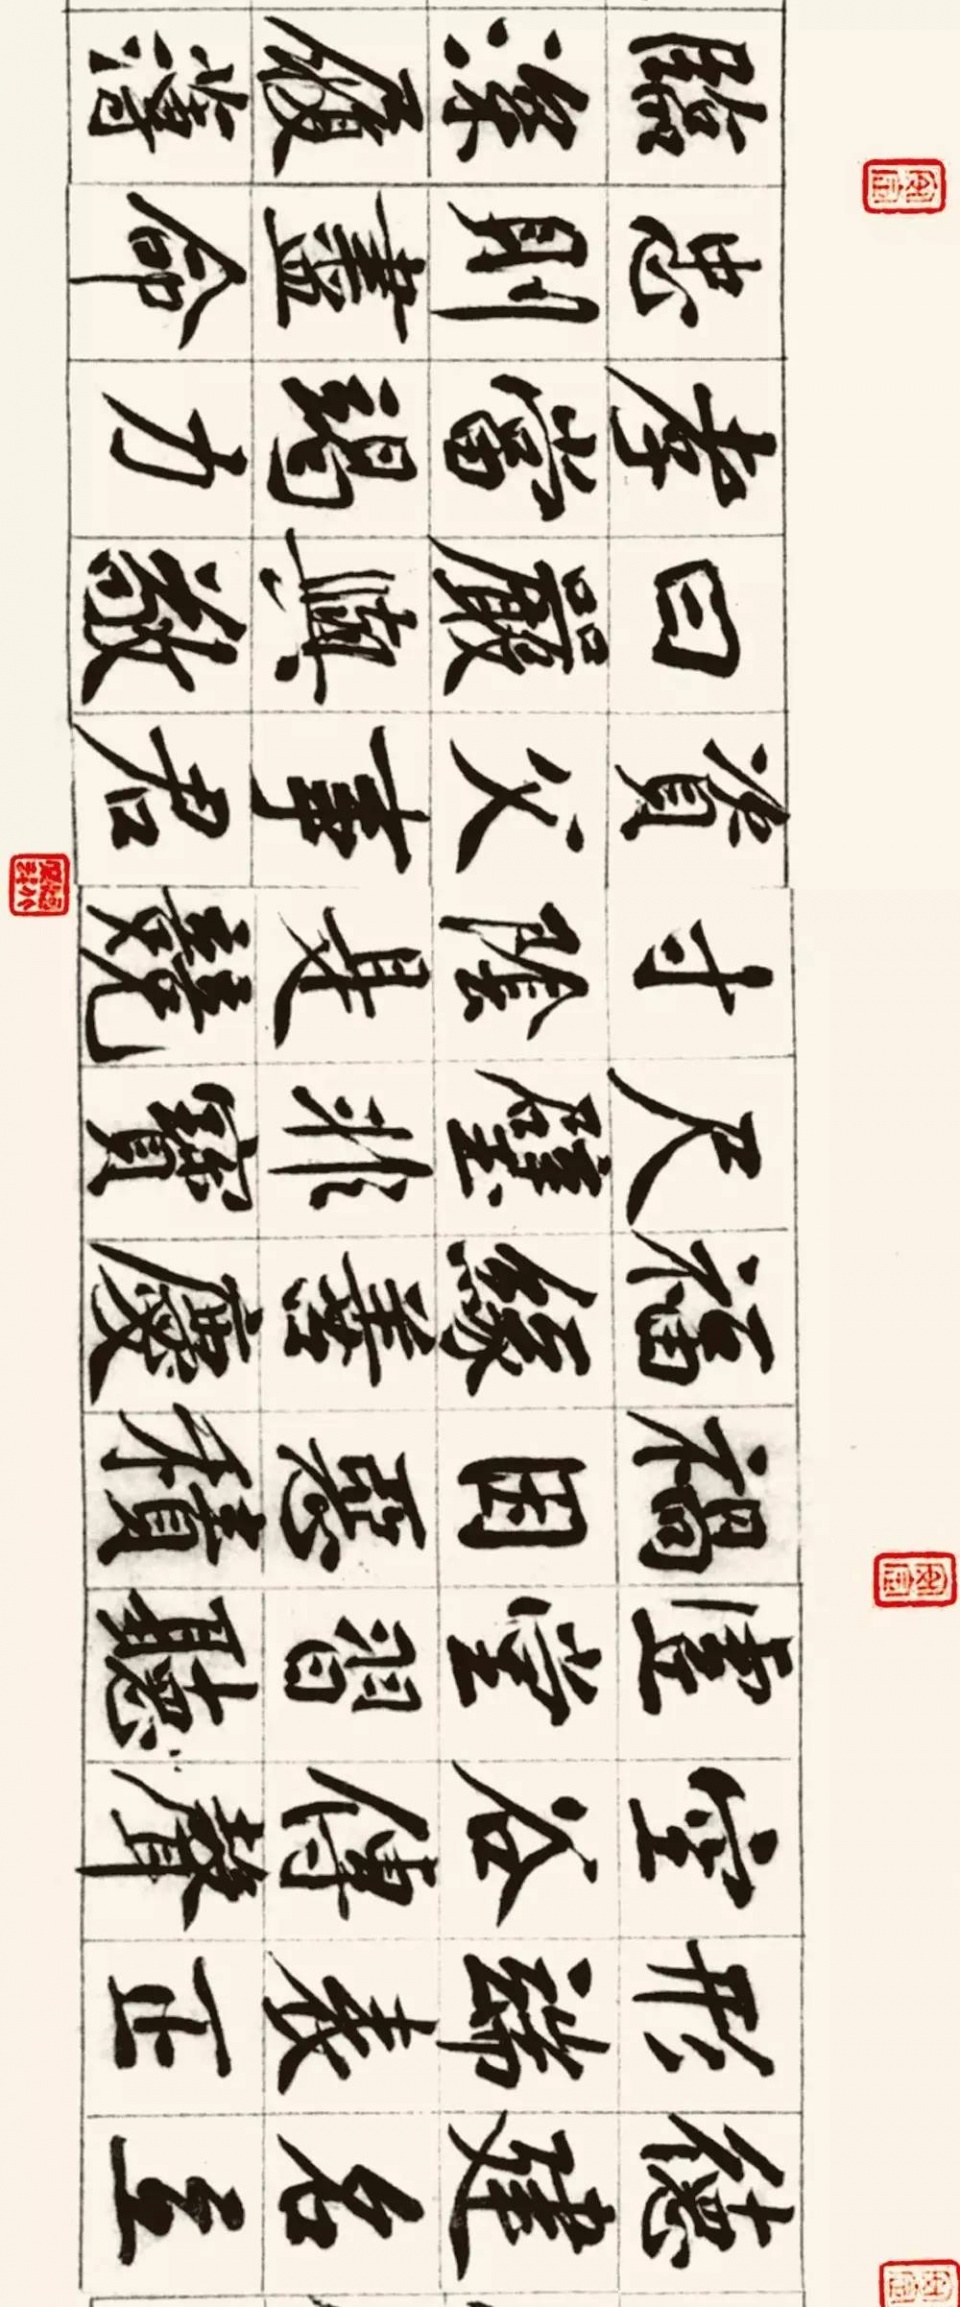 德建名立
形端表正
空谷傳聲
虛堂習聽
禍因惡積
福緣善慶
尺璧非寶
寸陰是競
資父事君
曰嚴與敬
孝當竭力
忠則盡命
臨深履薄